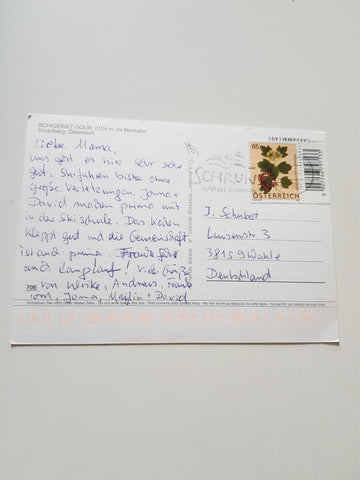 SCHIGEBIET GOLM, 2124 m, im Montafon
Vorarlberg, Österreich
Liebe Mama,
uns geht es hier sehr sehr
gut. Skifahren bisher ohne
große Verletzungen. Jonna +
David machen prima mit
in der Skischule. Das Kochen
klappt gut und die Gemeinschaft
ist auch prima. Frauke fährt
auch Langlauf! Viele Grüße
von Ulrike, Andreas, Frauke
Jonna, + David
706
SCHRUNS
65
ÖSTERREICH
J. Schubot
Luisenstr. 3
38159 Vechelde
Deutschland
Schreiben Sie nicht unter dieser Zeile - Do not write below this line - Non scrivere sotto questa linea